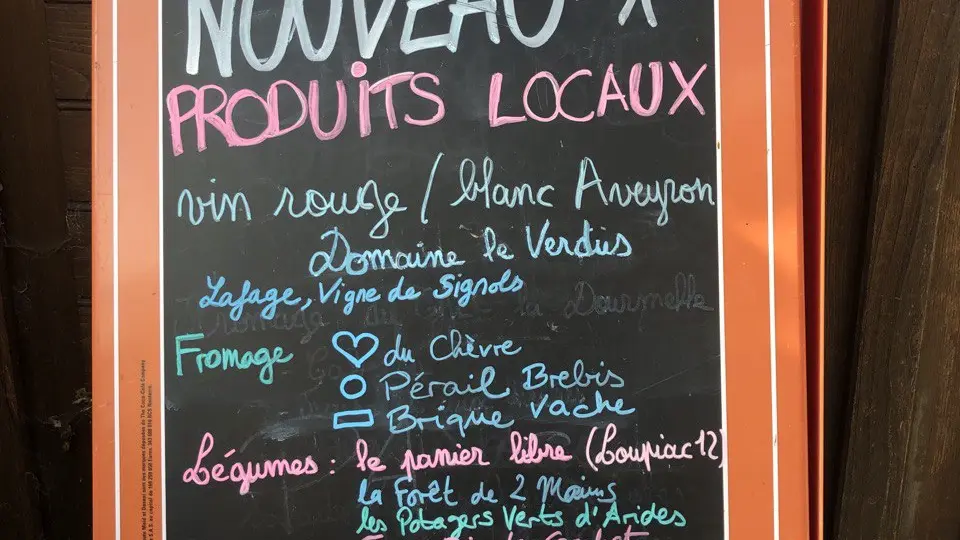 NOUVEAUX
PRODUITS LOCAUX
vin rouge / blanc Aveyron
Domaine le Verdus
Lafage, Vigne de Signols
Fromage ♡ du Chèvre
Pérail Brebis
Brique Vache
Légumes : le panier libre (Loupiac 12)
la Forêt de 2 Mains
les Potagers Verts d'Arides